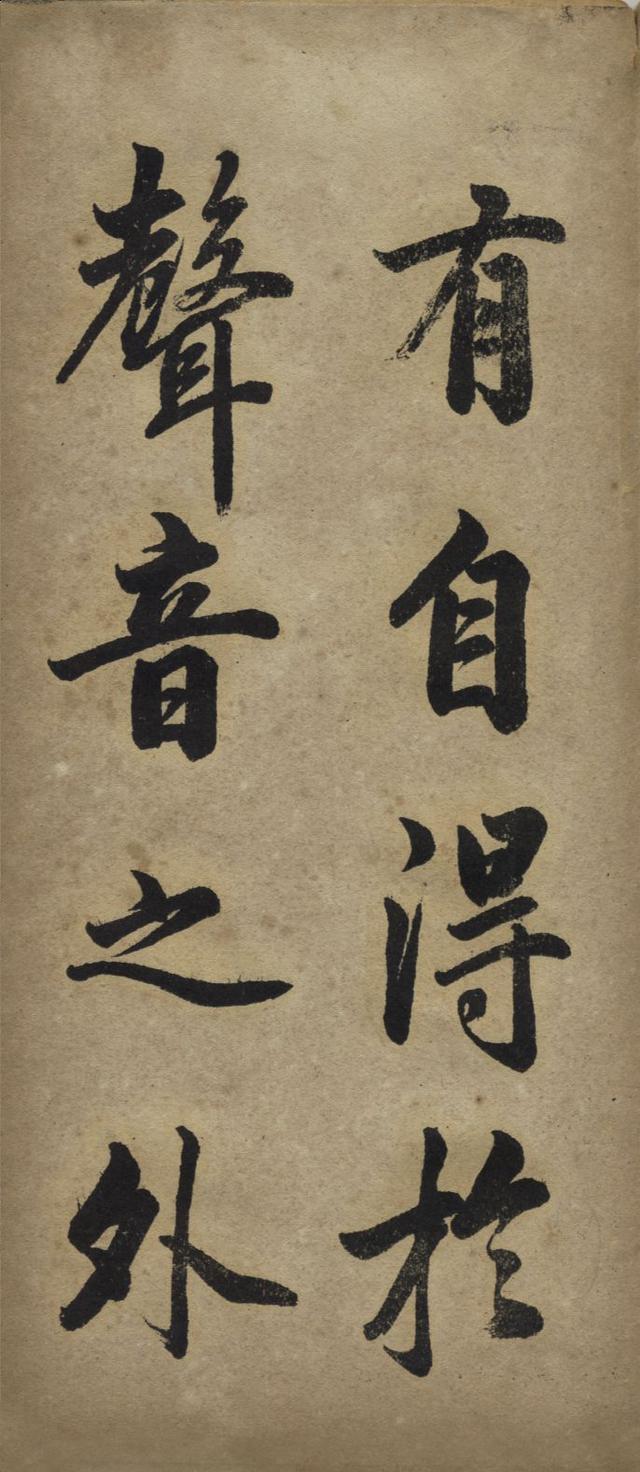 有自得於
聲音之外